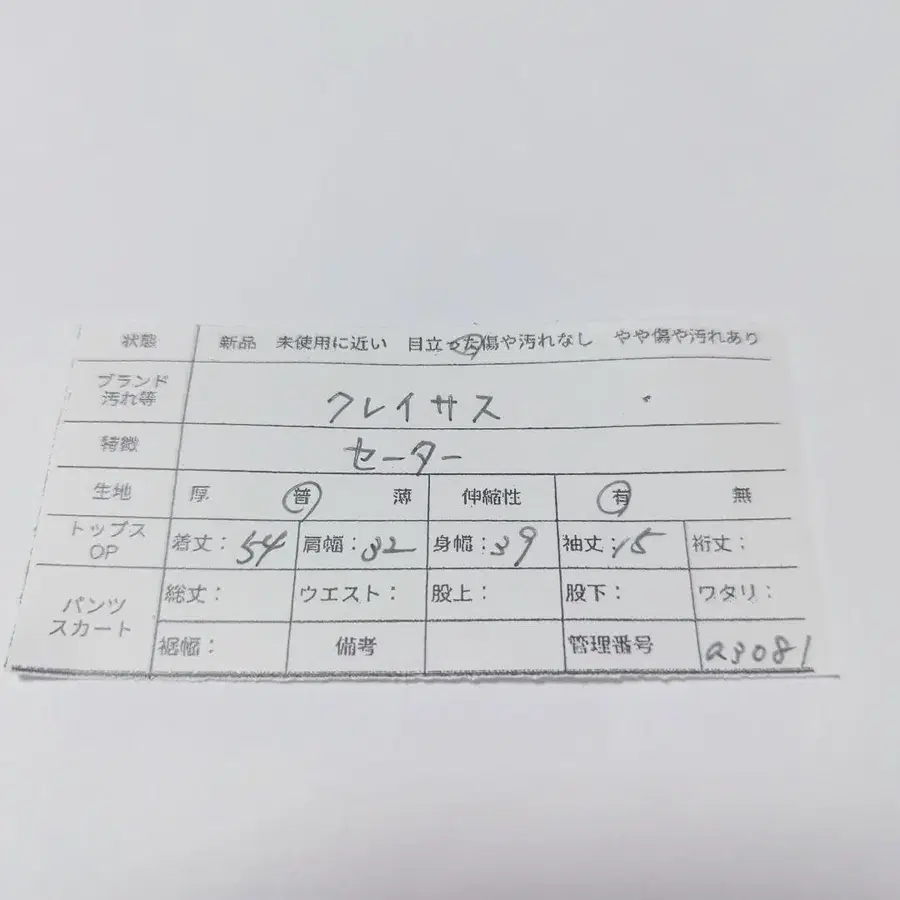 状態 新品 未使用に近い 目立った傷や汚れなし やや傷や汚れあり
ブランド
汚れ等 クレイサス
特徴 セーター
生地 厚 普 薄 伸縮性 有 無
トップス
OP 着丈：54 肩幅：32 身幅：39 袖丈：15 裄丈：
パンツ
スカート 総丈： ウエスト： 股上： 股下： ワタリ：
裾幅： 備考 管理番号 a3081